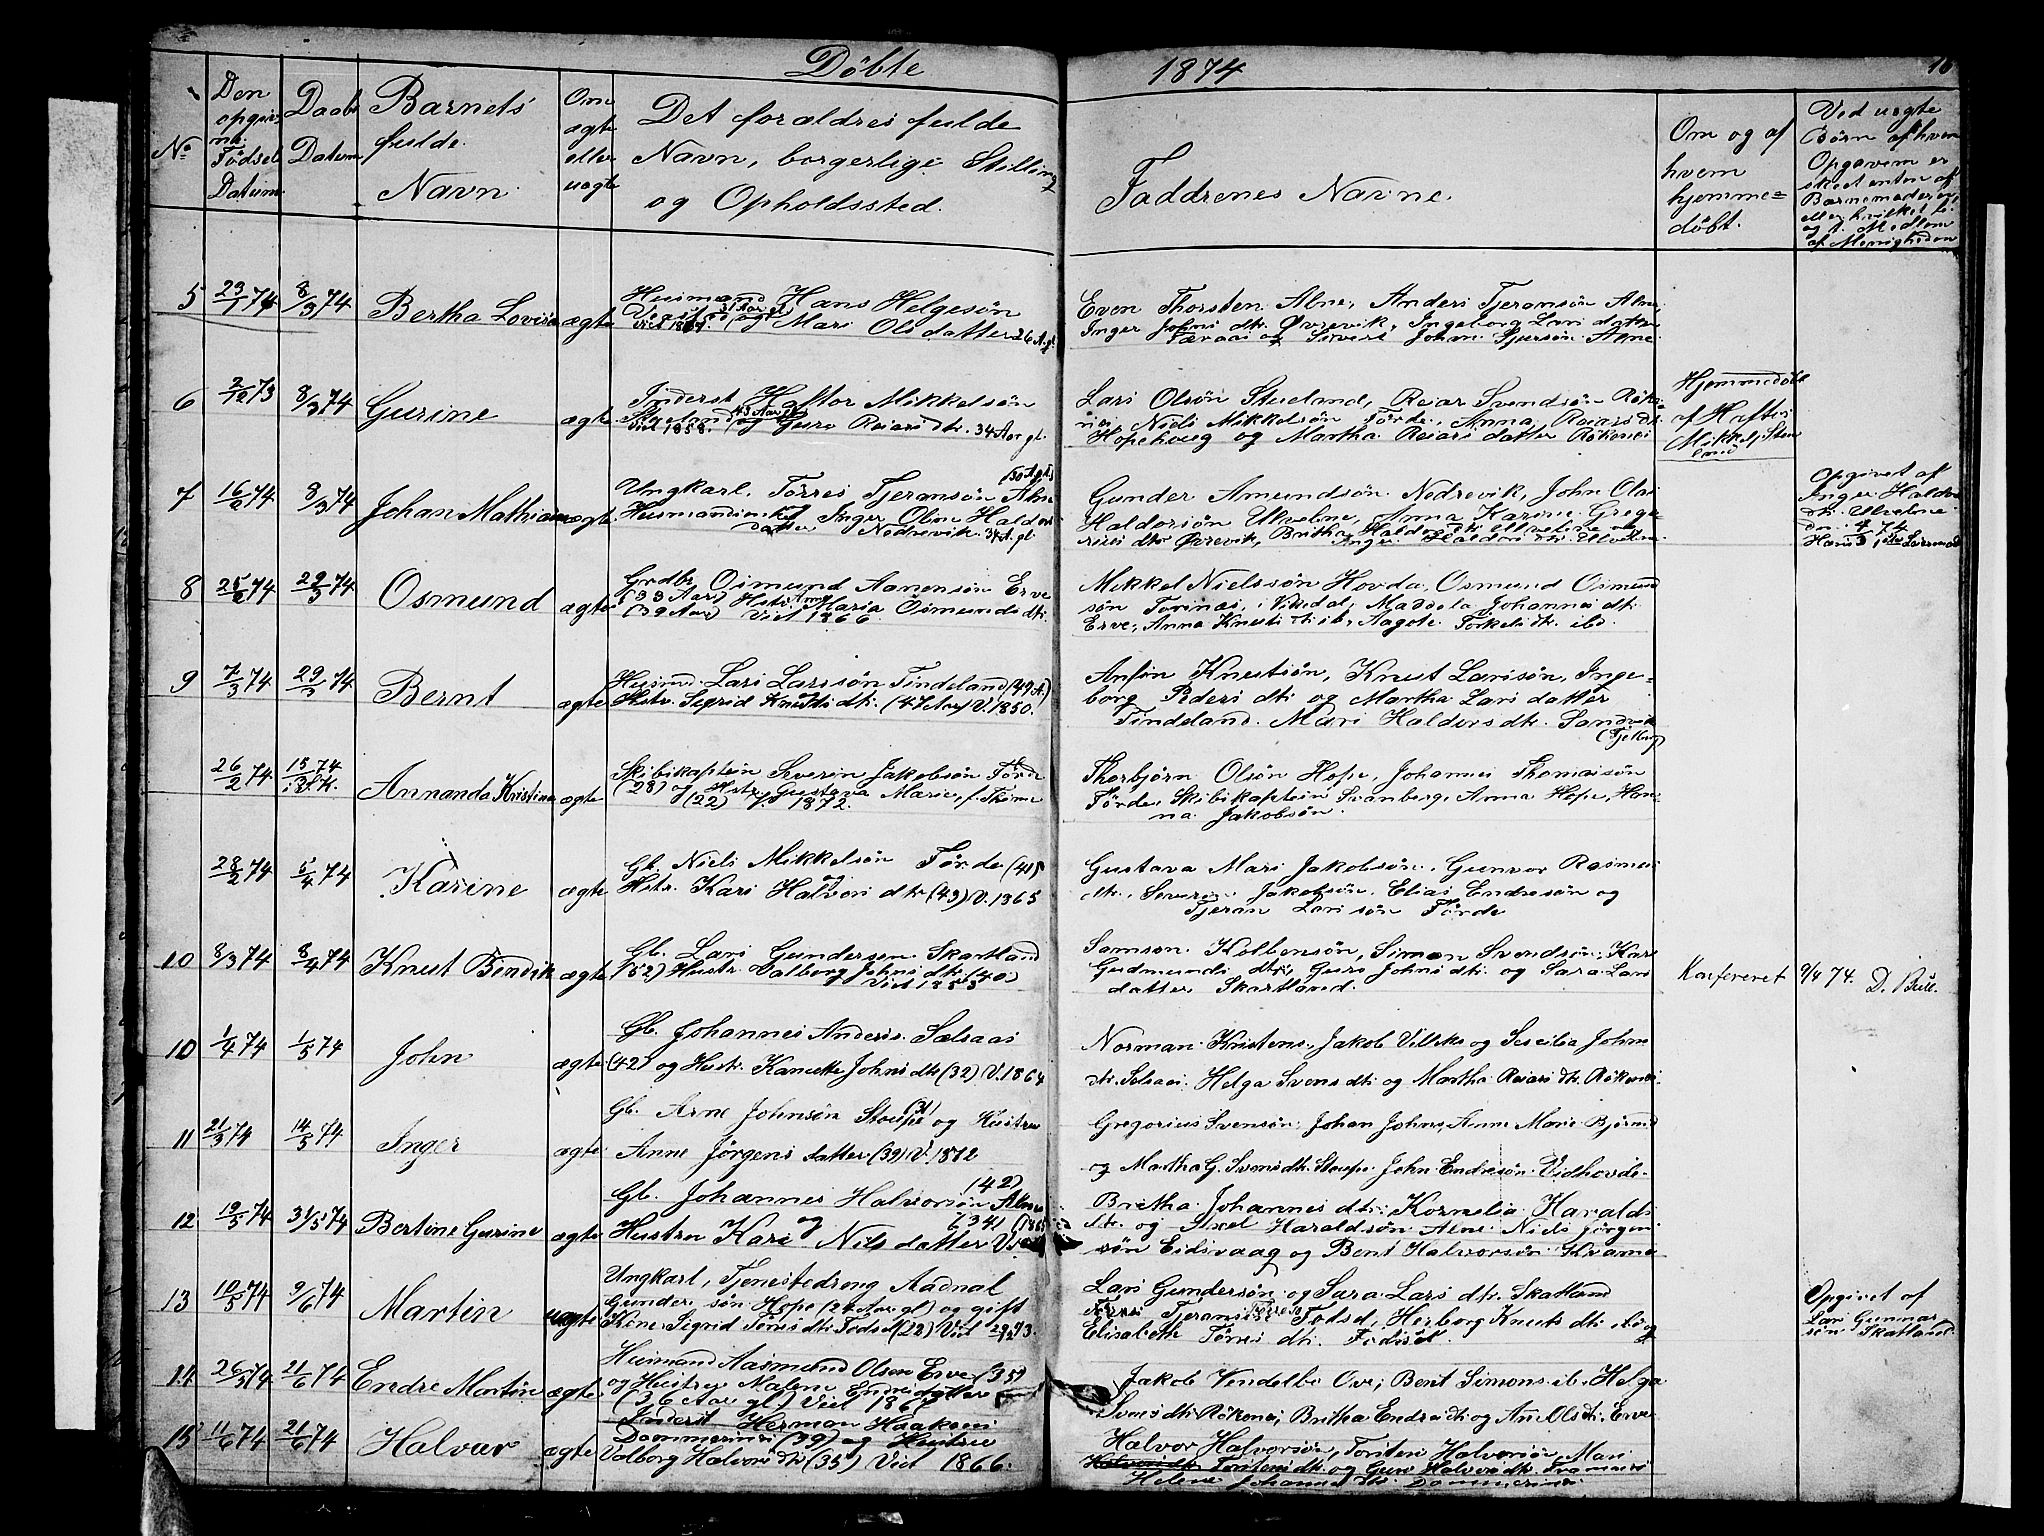 Döbte 1874
16
No
Den opgivne Födsels Datum
Daabs Datum
Barnets fulde Navn
Om ægte eller uægte
Det forældres fulde Navn, borgerlige Stilling og Opholdssted.
Faddrenes Navne.
Om og af hvem hjemme=döbt.
Ved uægte Börn af hvem Opgaven er skeet enten af Barnemoderen
5 23/1 74 8/3 74 Bertha Lovisa ægte
Husmand Hans Helgesön
31 Aar gl.
og Mari Olsdatter 26 A. gl.
Even Thorsten Alne, Anders Tjeransön Alne,
Inger Johns dtr. Övrevik, Ingeborg Lars datter
og Sivert Johan Sjursön Alne
6 2/12 73 8/3 74 Gurine ægte
Inderst Haftor Mikkelsön
43 Aar gl.
Viet 1858. og Guro Reiars dtr. 34 Aar gl.
Lars Olsön Stueland, Reiar Svendsön Röke=
nes, Niels Mikkelsön Förde, Anna Reiarsdtr.
Hopehoug og Martha Reiars datter Rökenes
Hjemmedöbt
af Haftor
Mikkelsen
7 16/2 74 8/3 74 Johan Mathias uægte
(30 A. gl.)
Ungkarl, Törres Tjeransön Alne
Inger Oline Haldors
datter Nedrevik. 34 A. gl.
Gunder Amundsön Nedrevik, John Olai
Haldorsön Ulvelne, Anna Karine Grego
rius dtr. Övrevik, Britha Haldors dtr. Ulvelne og
Inger Haldors dtr. Ulvelne
Opgivet af
Inger Haldors
dtr. Ulvelne
8 25/2 74 29/3 74 Osmund ægte
Grdbr. Osmund Aanensön Erve
(33 Aar) Hstr. Anna Maria Osmunds dtr.
(39 Aar) Viet 1866.
Mikkel Nielssön Hovda, Osmund Osmund
sön Tovinæs, i Vikedal, Maddela Johannes dtr.
Erve, Anna Knuts dtr. ib., Aagote Torkels dtr. ibd.
9 7/3 74 29/3 74 Bernt ægte
Husmd. Lars Larssön Tindeland (49 A.)
Hstr. Sigrid Knuts dtr. (47 Aar) V. 1850.
Anfin Knutsön, Knut Larssön, Inge=
borg Peders dtr. og Martha Lars datter
Tindeland. Mari Haldors dtr. Sandvik
(Fjelberg)
26/2 74 15/3 74 Annanda Kristina ægte
Skibskaptein Severin Jakobsön Förde
(28) og Hstr. Gustava Marie, f.
(22) V. 1872.
Thorbjörn Olsön Hope, Johannes Thomassön
Förde, Skibskaptein Svanberg, Anna Hope, Han=
na Jakobsön.
28/2 74 5/4 74 Karine ægte
Gb. Niels Mikkelsön Förde (41) og
Hstr. Kari Halvors dtr. (43) V. 1865
Gustava Mari Jakobsön. Gunvor Rasmus
dtr., Severin Jakobsön, Elias Endresön og
Tjeran Lars sön Förde
10 8/3 74 8/4 74 Knut Bendik ægte
Gb. Lars Gundersen Skartland
(52) Hustr. Valborg Johns dtr. (40)
Viet 1855
Samson Kolbensön, Simon Svendsön, Kari
Gudmunds dtr., Guro Johns dtr. og Sara Lars
datter Skartland.
Konfereret 9/4 74. D. Bull.
10 1/4 74 1/5 74 John ægte
Gb. Johannes Anders. Sælsaas
(42) og Hustr. Kanutte Johns dtr. (32) V. 1864
Norman Kristens., Jakob Villeks og Sescilia Johns
dtr. Selsaas. Helga Svens dtr. og Martha Reiars dtr. Rökenes.
11 21/3 74 14/5 74 Inger ægte
Gb. Arne Johnsön Stoupe (31) og Hustru
Anne Jörgens datter (39) V. 1872
Gregorius Svensön, Johan Johns, Anne Marie Björnd
og Martha G. Svens dtr. Stoupe, John Endresön Vidhovde
12 19/5 74 31/5 74 Bertine Gurine ægte
Gb. Johannes Halvorsön Alnes (42)
og (34) (1865
Hustru Kari Nils datter Viet
Britha Johannes dtr., Kornelia Haralds
dtr. og Axel Haraldsön Alne. Niels Jörgen
sön Eidsvaag og Bent Halvorsön Kvame
13 10/5 74 9/6 74 Martin uægte
Ungkarl, Tjenestedreng Aadnal
Gunder sön Hope (24 Aar gl) og gift
Kone Sigrid Törris dtr. Födsel (22) Viet
Lars Gundersön og Sara Lars dtr. Skatland
Tjerans Födsel, Herborg Knuts dtr. og
Elisabeth Törris dtr. Födsel.
Opgivet af
Lars Gunnar
sön Skatland
14 26/5 74 21/6 74 Endre Martin ægte
Husmand Aasmund Olsen Erve (35)
og Hustru Malene Endre datter
(36 Aar gl) Viet 1867
Jakob Vendelbo Ove, Bent Simons. ib., Helga
Svens dtr. Rökenes, Britha Endres dtr. og An Ols dtr. Erve
15 11/6 74 21/6 74 Halvar ægte
Inderst Herman Haakons
Dommersnes (39) og Hustru
Valborg Halvors dtr. (35) Viet 1866.
Halvor Halvorsön, Torsten Halvorsön, Mari
Torstens dtr. og Guro Halvors dtr. Framnes
Helene Johannes dtr. Dommersnes